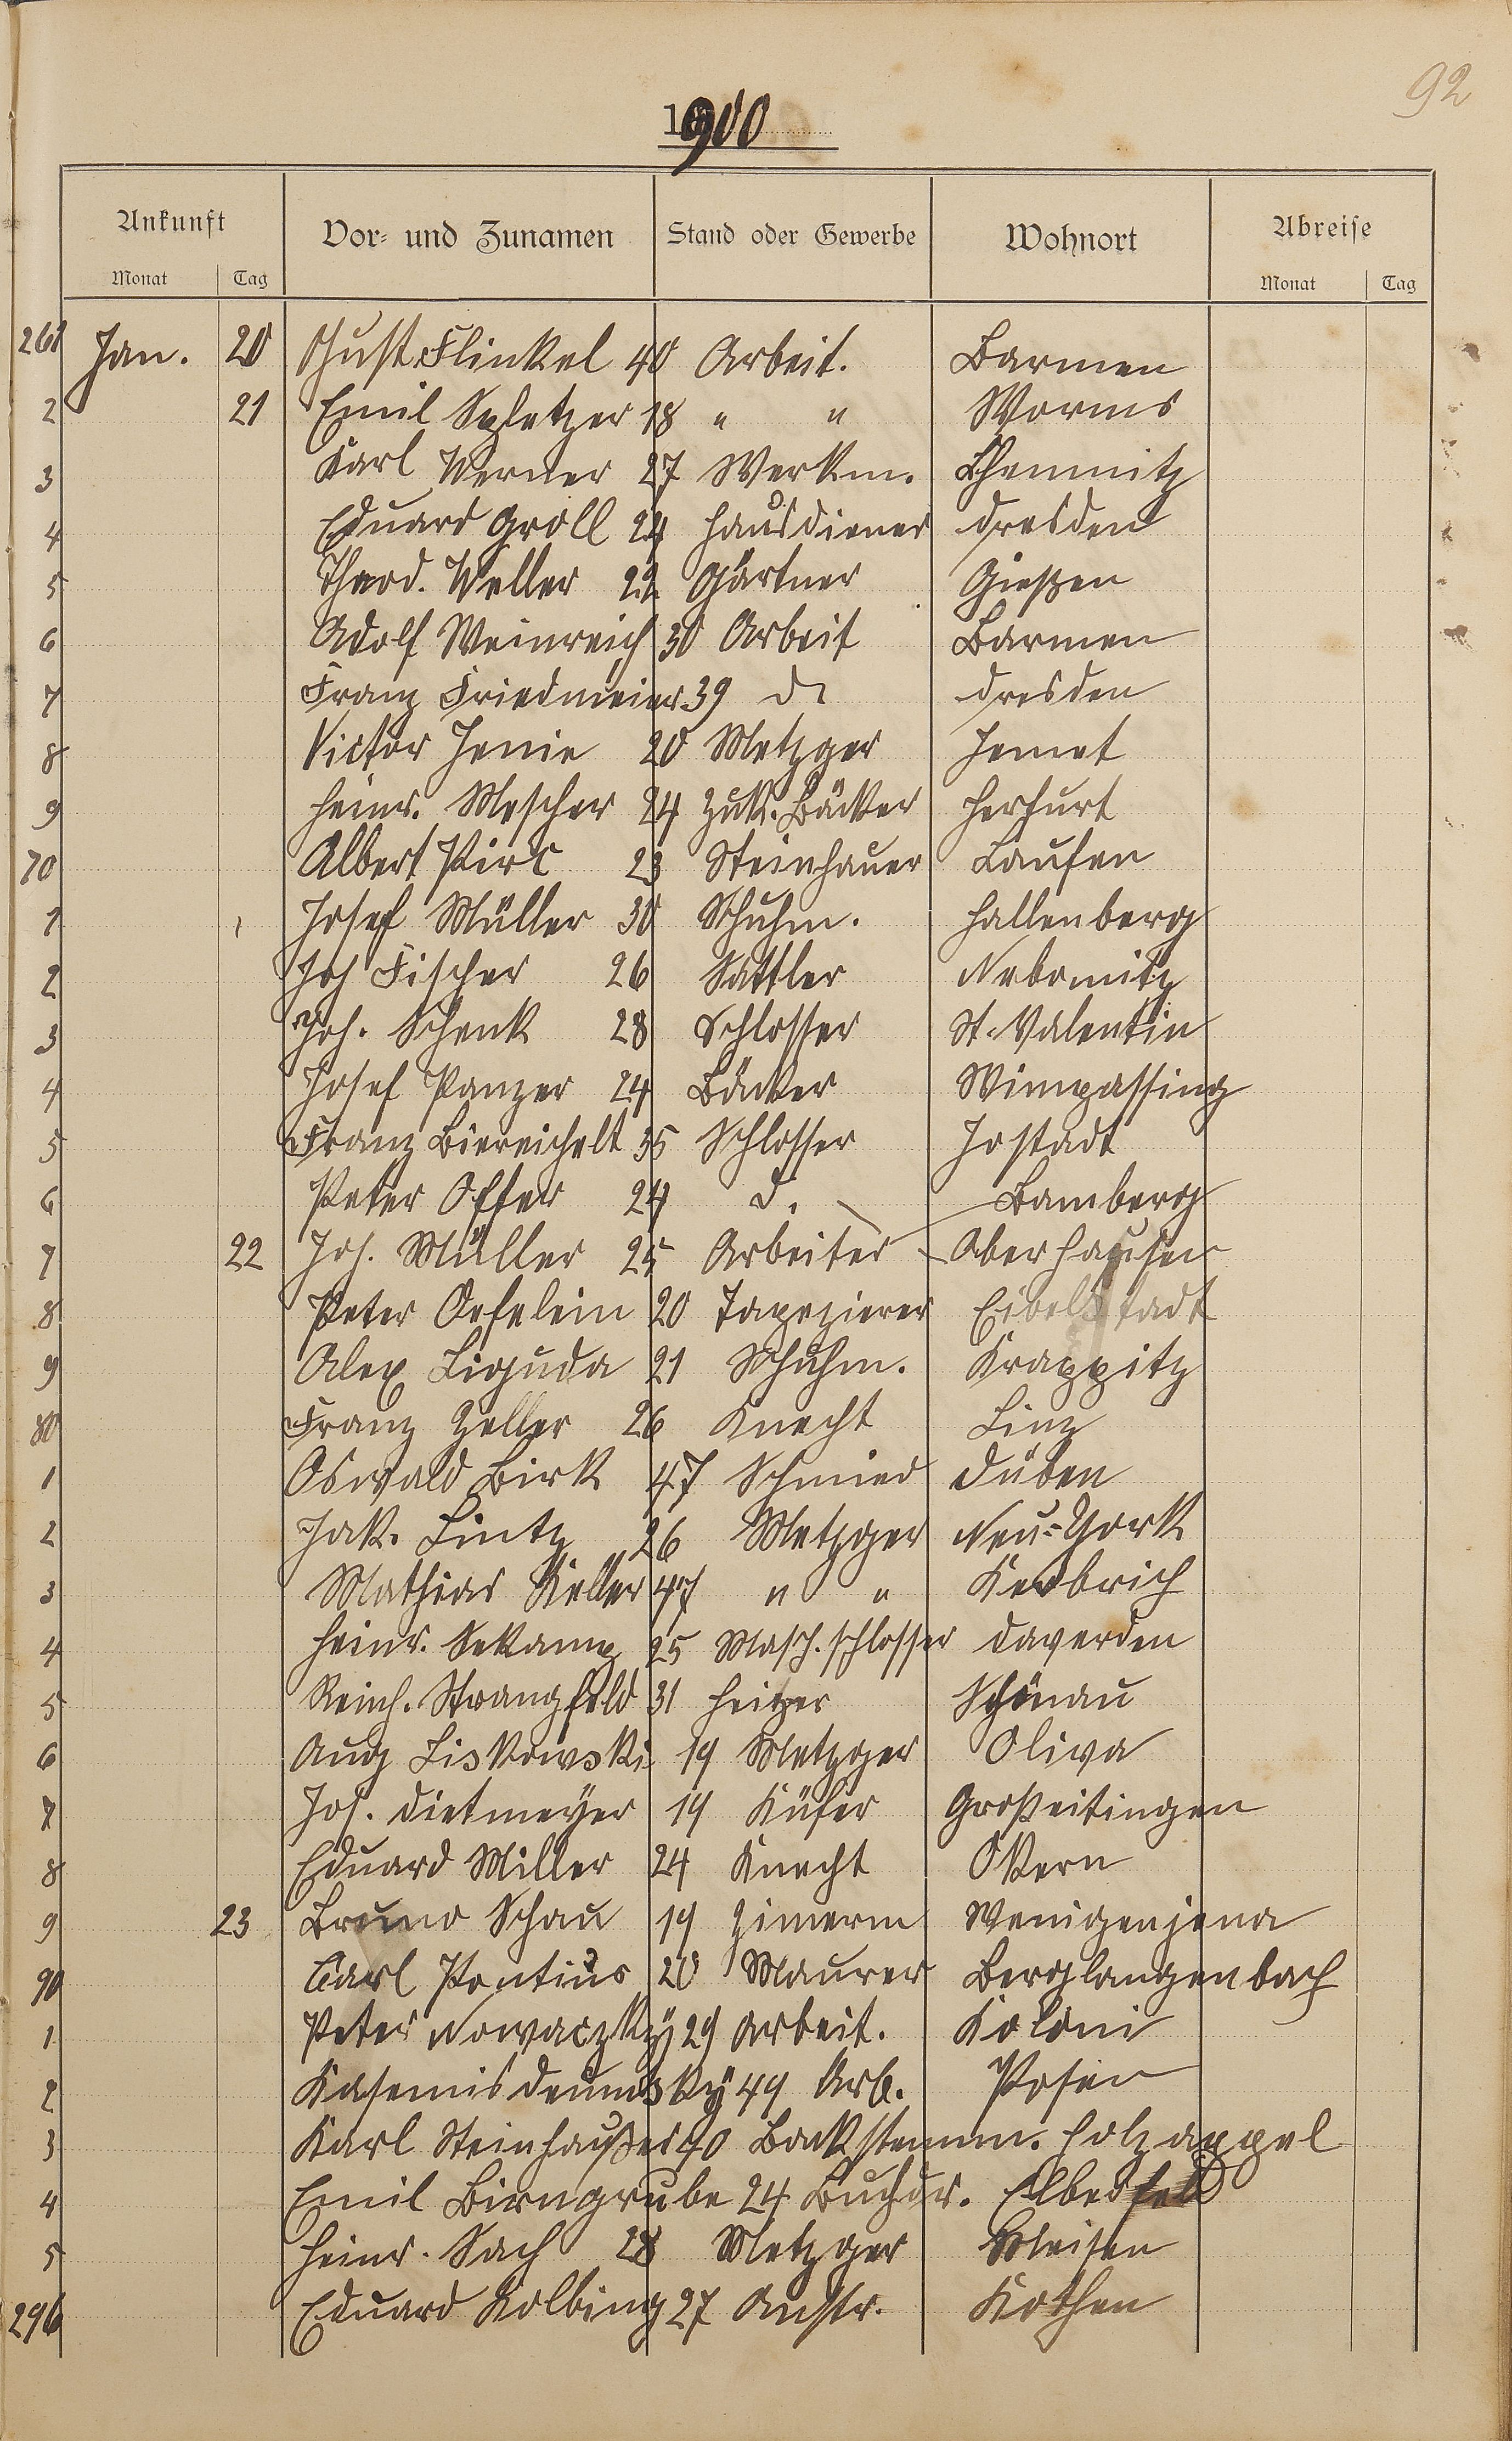 92
1900
Ankunft Vor- und Zunamen Stand oder Gewerbe Wohnort Abreise
Monat Tag Monat Tag
261 Jan. 20 Gust. Flinkel 40 Arbeit. Barmen
2 21 Emil 18 " " Worms
3 Karl Werner 27 Werkm. Chemnitz
4 Eduard Groll 24 Hausdiener Dresden
5 Theod. Weller 22 Gärtner Gießen
6 Adolf Weinreich 30 Arbeit Barmen
7 Franz Friedmeier 39 do Dresden
8 Victor Jenie 20 Metzger Jemet
9 Heinr. Mescher 24 Zuk. Bäcker Herfurt
70 Albert Pirc 23 Steinhauer Laufen
1 Josef Müller 30 Schuhm. Hallenberg
2 Joh Fischer 26 Sattler Nebomitz
3 Joh. Schenk 28 Schlosser St. Valentin
4 Josef Panzer 24 Bäcker Wimpassing
5 Franz Biereichelt 35 Schlosser Jostadt
6 Peter Offer 24 d. Bamberg
7 22 Jos. Müller 25 Arbeiter Oberhausen
8 Peter Oefelein 20 Tapezierer Eibelstadt
9 Alex Liguda 21 Schuhm. Krappitz
80 Franz Zeller 26 Knecht Linz
1 Oswald Birk 47 Schmied Düben
2 Jak. Lintz 26 Metzger Neu-York
3 Mathias Keller 47 " " Kerbrich
4 Heinr. Sekamp 25 Masch. schlosser Daverden
5 Reinh. Strangfeld 31 Heitzer Schönau
6 Aug Liskowski 19 Metzger Oliva
7 Jos. Dietmeyer 19 Küfer Großeitingen
8 Eduard Miller 24 Knecht Okern
9 23 Bruno Schau 19 Zimerm Wenigenjena
90 Carl Pontius 20 Maurer Berglangenbach
1 Peter Nowaczky 29 Arbeit. Koloni
2 Kasemis 49 Arb. Posen
3 Karl Steinhaußer 40 Holzappel
4 Emil Birngrube 24 Buchdr. Elberfeld
5 Heinr. Sach 28 Metzger Meisen
296 Eduard Kolbing 27 Anstr. Kothen